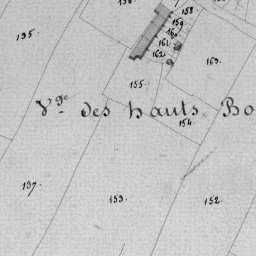 158
158
159
160
161
162
195
163
155
Vge des hauts Bo
154
197
153
152